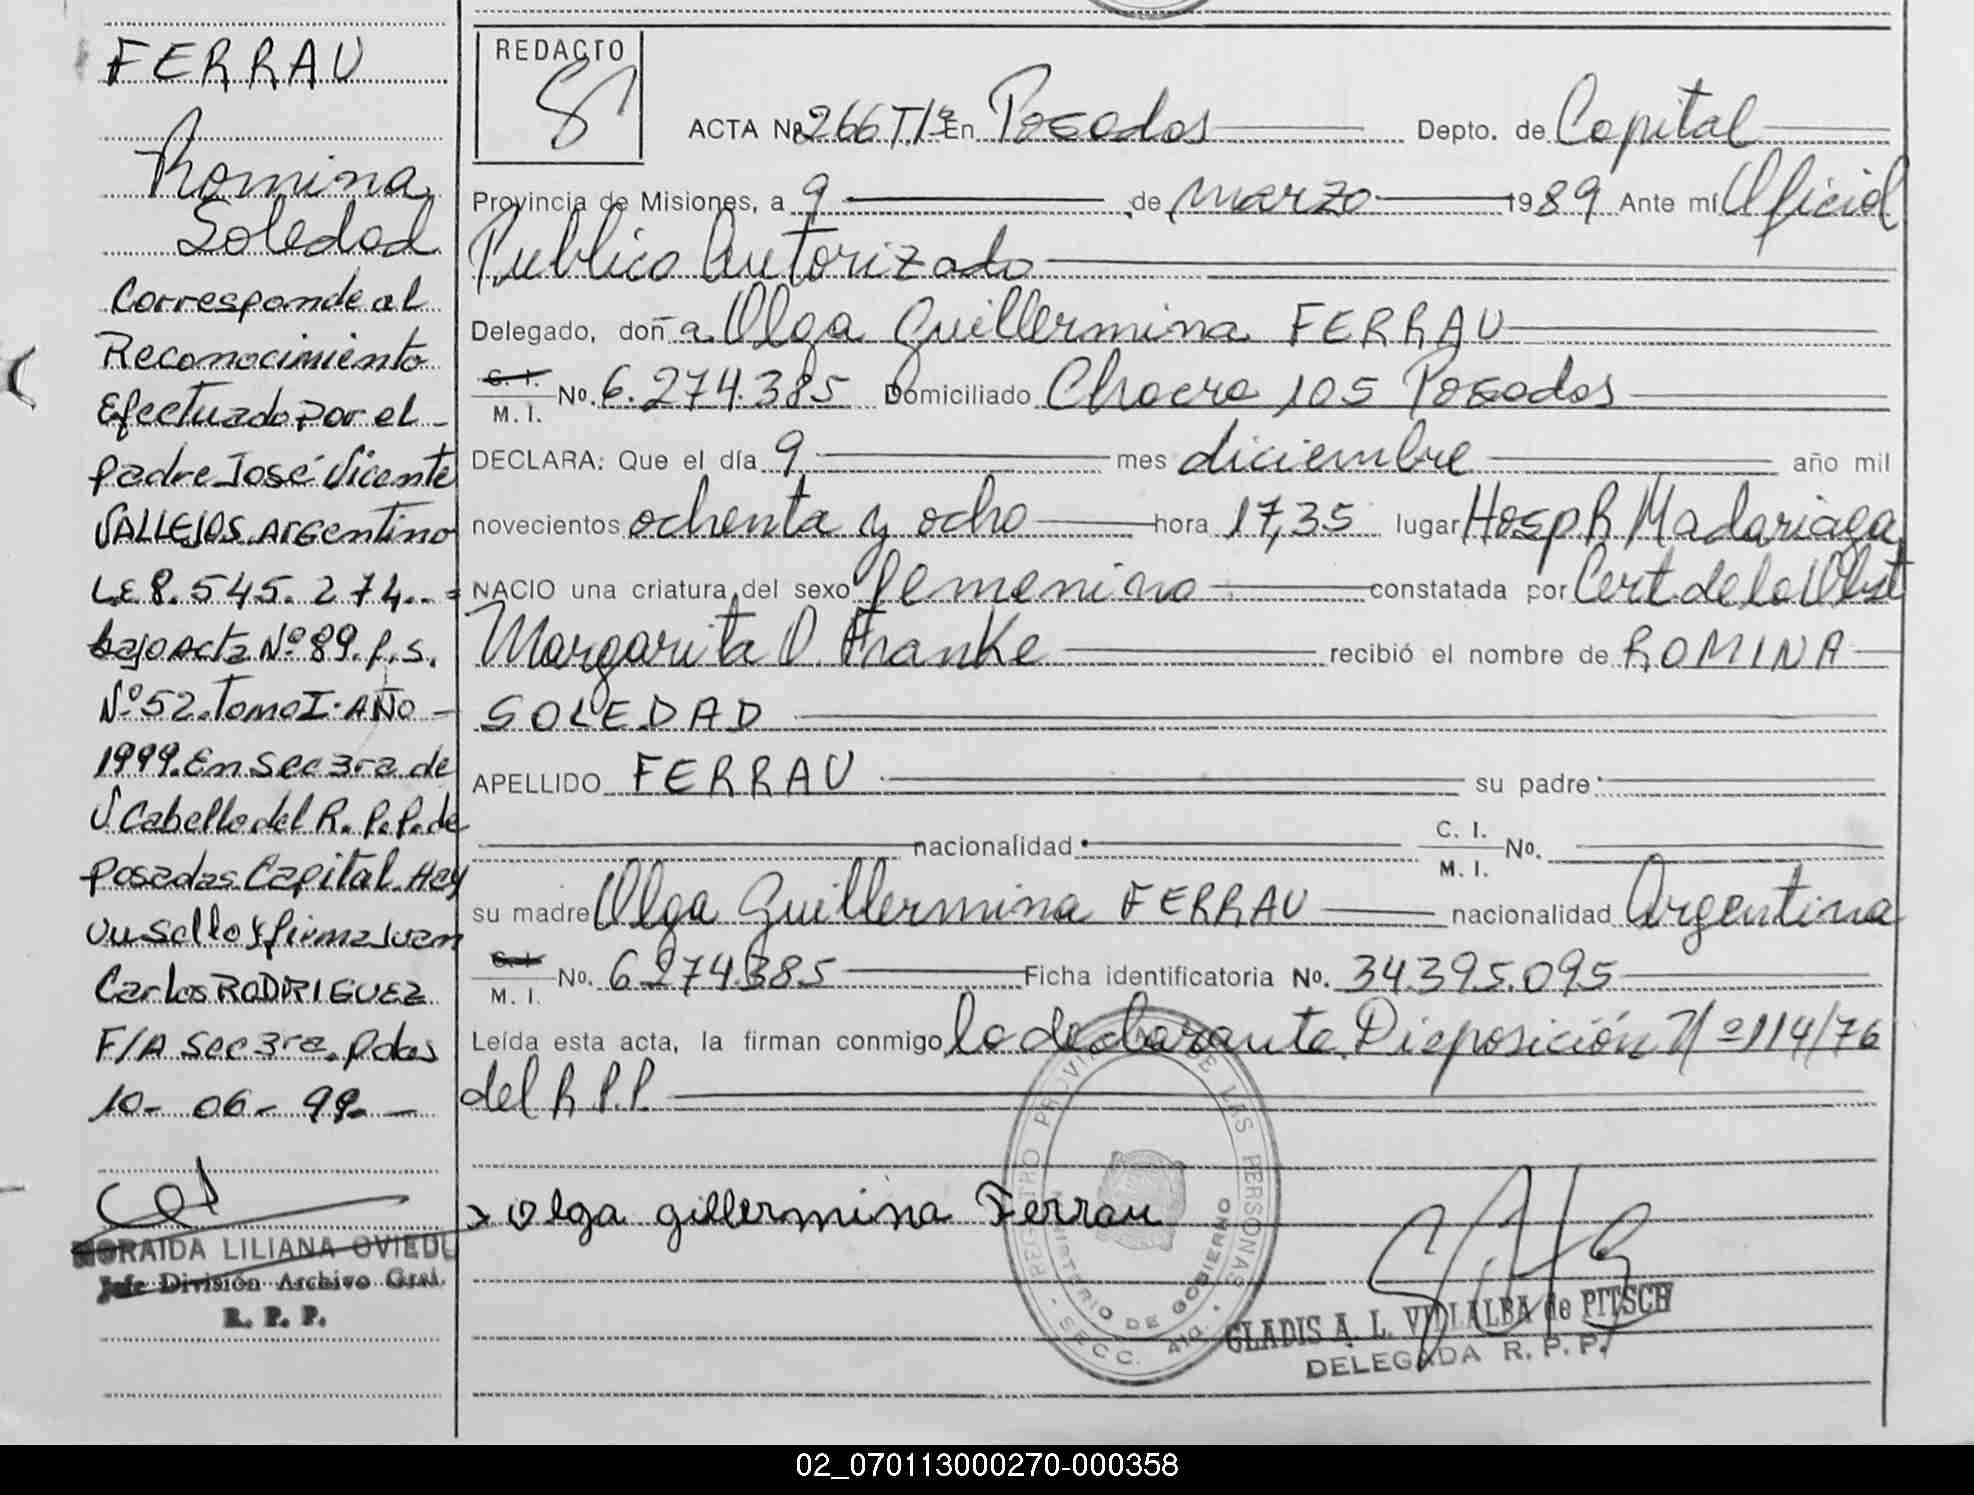 FERRAU
Romina
Soledad
Corresponde al
Reconocimiento
Efectuado por el -
padre José Vicente
VALLEJOS. Argentino
L.E 8.545.274.. =
bajo Acta Nº 89. f.s.
Nº 52. Tomo I. AÑO -
1999. En Secc 3ra de
V. Cabello del R. P. P. de
Posadas Capital. Hay
un Sello y firma Juan
Carlos RODRIGUEZ
F/A Secc 3ra. Pdas
10- 06- 99. -
LILIANA OVIEDO
Jefe División Archivo Gral.
R. P. P.
REDACTO
ACTA Nº 266 T/1º En Posadas Depto. de Capital
Provincia de Misiones, a 9 de marzo 1989 Ante mí Oficial
Publico Autorizado
Delegado, doña Olga Guillermina FERRAU
C. I.
M. I. No. 6.274.385 Domiciliado Chacra 105 Posadas
DECLARA: Que el día 9 mes diciembre año mil
novecientos ochenta y ocho hora 17,35 lugar Hosp R Madariaga
NACIO una criatura del sexo femenino constatada por Cert de la Obst
Margarita O. Franke recibió el nombre de ROMINA
SOLEDAD
APELLIDO FERRAU su padre
nacionalidad C. I.
M. I. No.
su madre Olga Guillermina FERRAU nacionalidad Argentina
C. I.
M. I. No. 6.274.385 Ficha identificatoria No. 34.395.095
Leída esta acta, la firman conmigo la declarante. Disposición Nº 114/76
del R P.P.
x Olga gillermina Ferrau
REGISTRO PROVINCIAL DE LAS PERSONAS
MINISTERIO DE GOBIERNO
SECC. 4ta.
GLADIS A. L. VILLALBA de PITSCH
DELEGADA R. P. P.
02_070113000270-000358